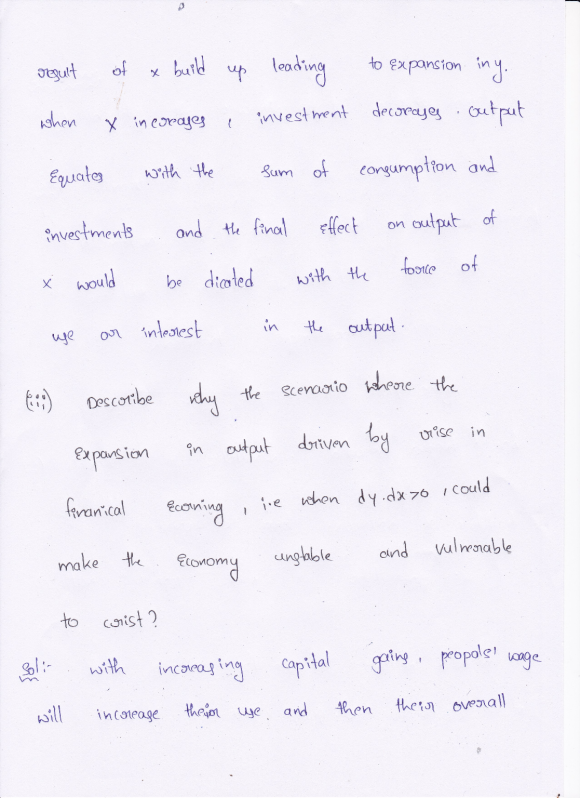 result of x build up leading to expansion in y.
when X increases , investment decreases . output
Equates with the sum of consumption and
investments and the final effect on output of
x would be dicated with the force of
use or interest in the output.
(iii) Describe why the scenario where the
Expansion in output driven by rise in
finanical Ecorning , i.e when dy.dx>0 , could
make the Economy unstable and vulnerable
to corist?
Sol:- with increasing capital gains, peopols' wage
will increase their use and then their overall